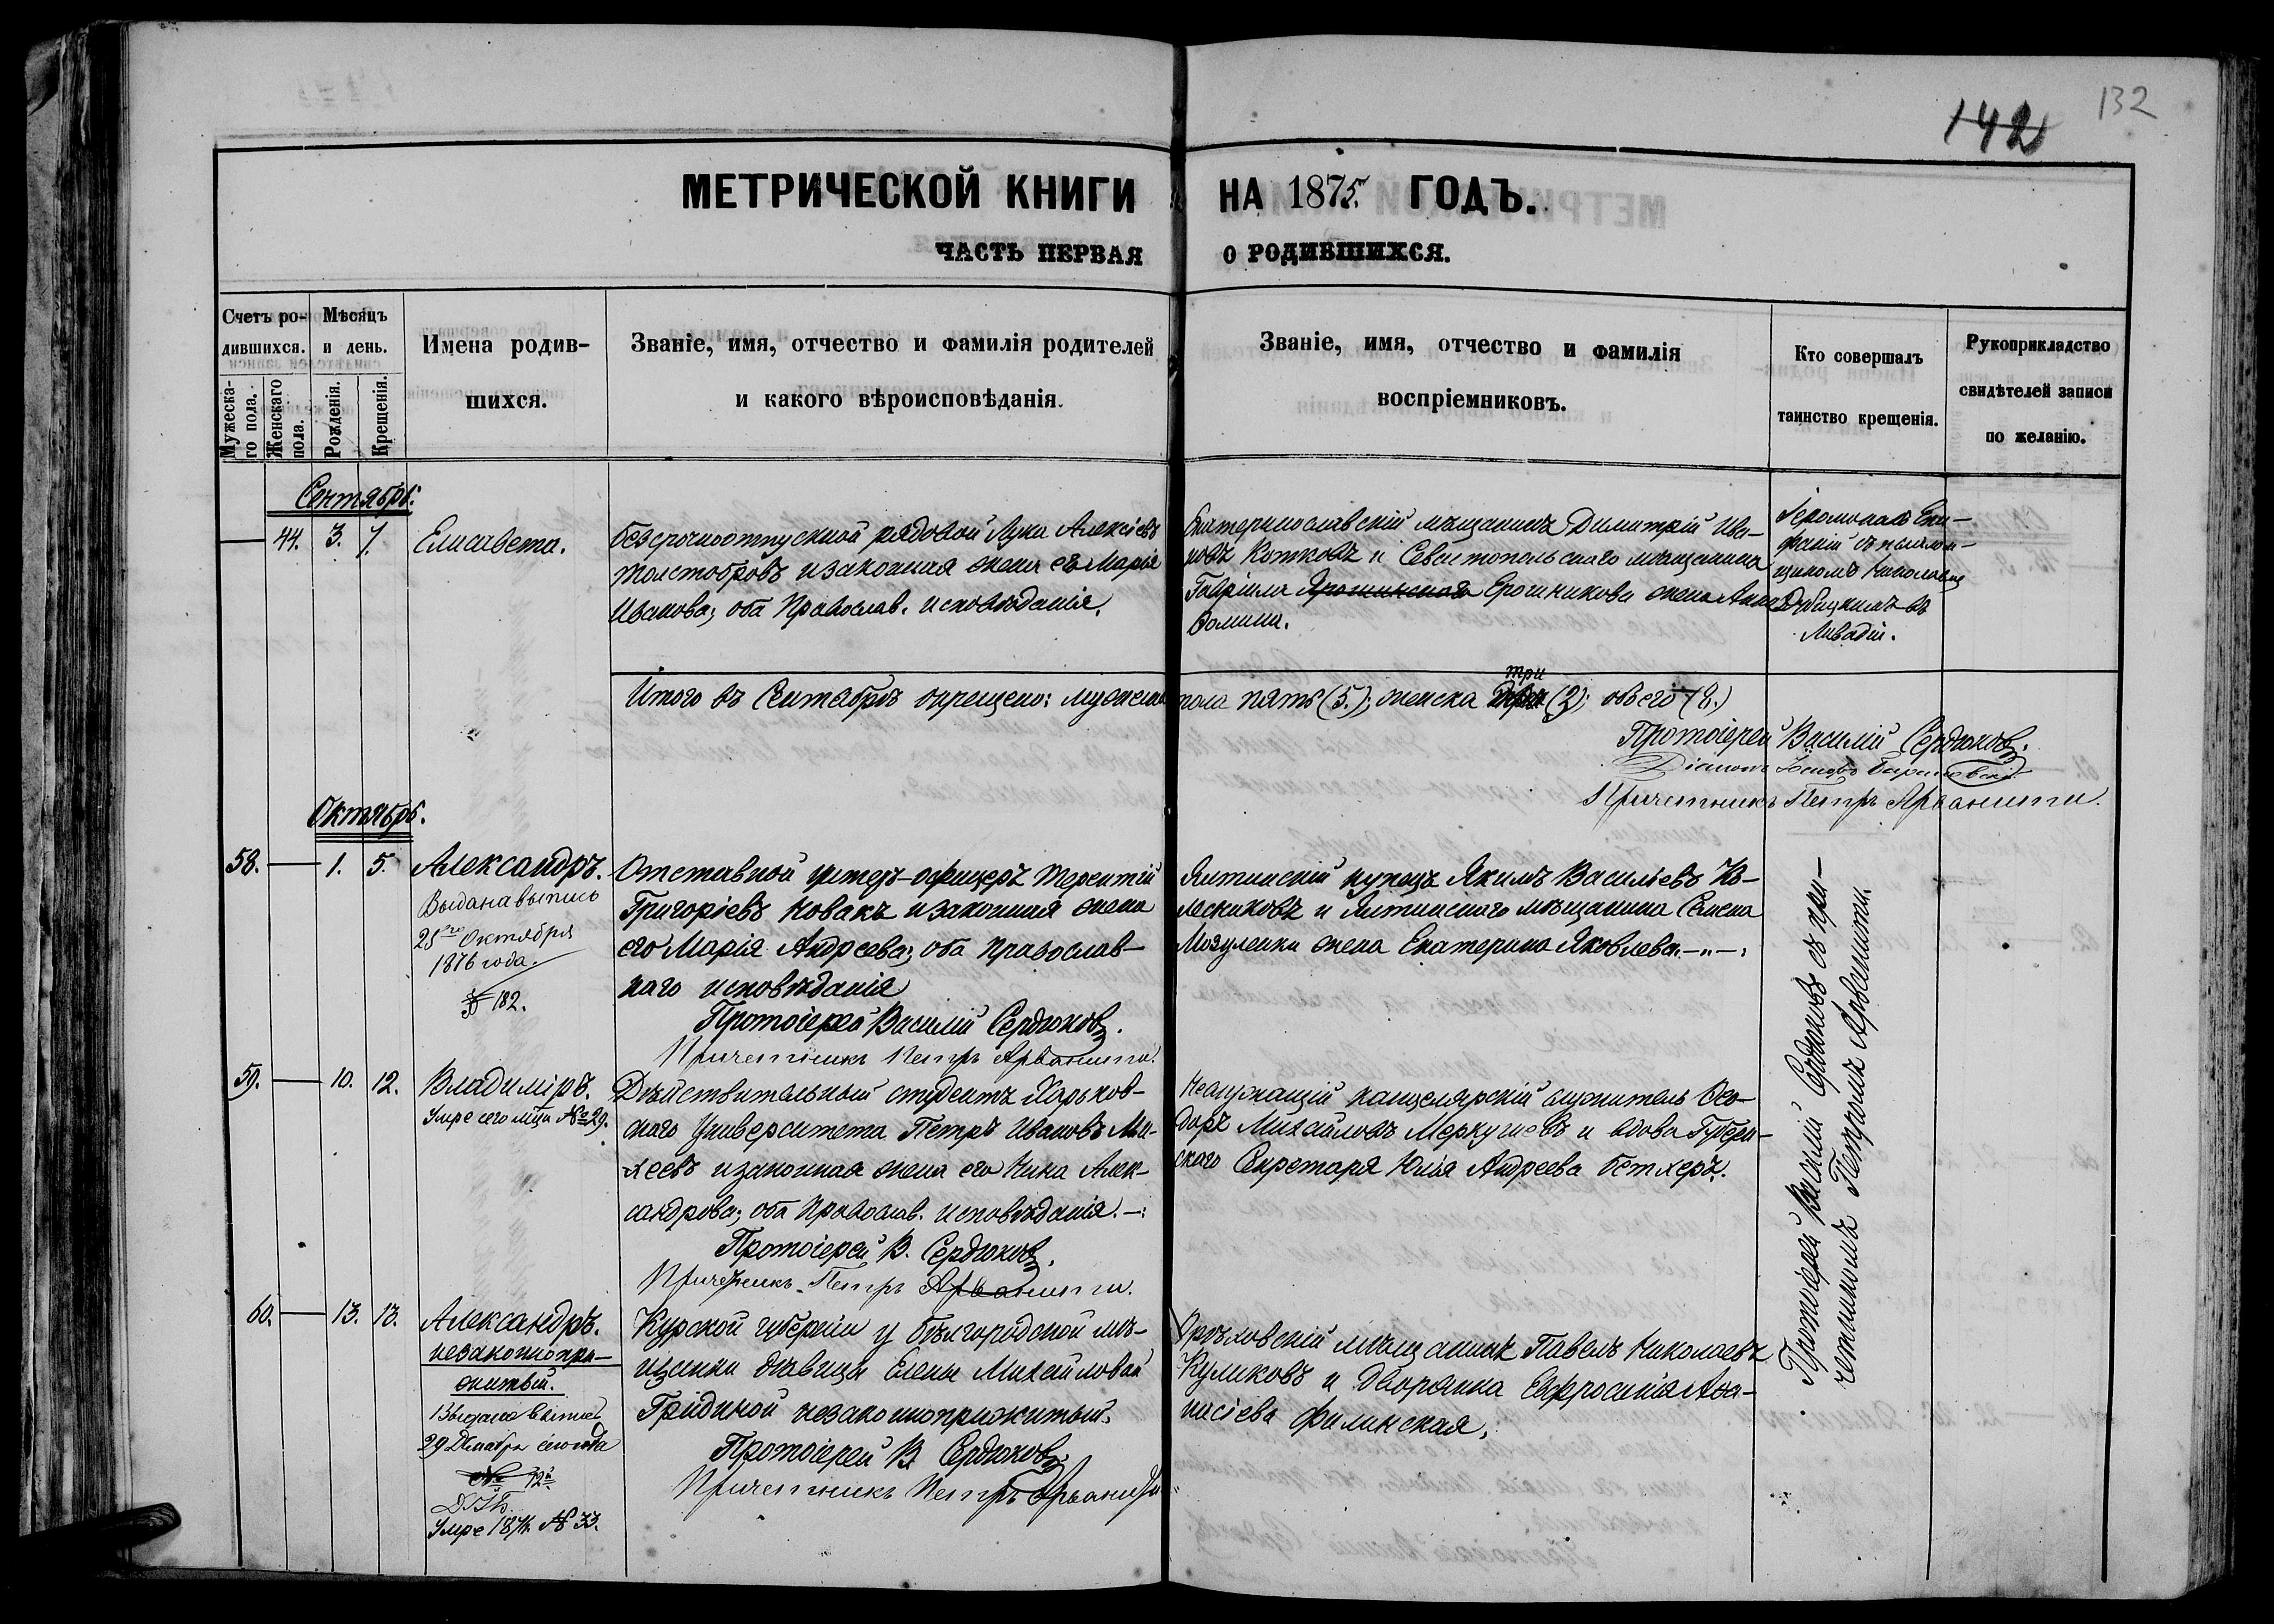 142 132
МЕТРИЧЕСКОЙ КНИГИ НА 1875. ГОДЪ.
ЧАСТЬ ПЕРВАЯ О РОДИВШИХСЯ.
Счетъ ро-
дившихся.
Мужеска-
го пола.
Женскаго
пола.
Мѣсяцъ
и день.
Рожденія.
Крещенія.
Имена родив-
шихся.
Званіе, имя, отчество и фамилія родителей
и какого вѣроисповѣданія.
Званіе, имя, отчество и фамилія
воспріемниковъ.
Кто совершалъ
таинство крещенія.
Рукоприкладство
свидѣтелей записи
по желанію.
Сентябрь.
44. 3. 7. Елисавета.
Безсрочноотпускной рядовой Лука Алексіевъ
Толстобровъ и законная жена его Марія
Иванова; оба Православ. исповѣданія.
Екатеринославскій мѣщанинъ Димитрій Ива-
новъ Котковъ и Севастопольскаго мѣщанина
Гавріила Ерошникова жена Анна
Фомина.
Іеромонахъ Епи-
фаній съ
Николаемъ
въ
Ливадіи.
Итого въ Сентябрѣ окрещено: мужеска пола пять (5.); женска три (3); обоего (8.)
Протоіерей Василій Сердюковъ.
Діаконъ
Причетникъ Петръ Арванити.
Октябрь.
58. 1. 5. Александръ.
Выдана выпись
25го Октября
1876 года.
№ 182.
Отставной унтеръ-офицеръ Терентій
Григоріевъ Новакъ и законная жена
его Марія Андреева; оба Православ-
наго исповѣданія
Протоіерей Василій Сердюковъ.
Причетникъ Петръ Арванити.
Ялтинскій купецъ Якимъ Васильевъ Ко-
лесниковъ и Ялтинскаго мѣщанина Семена
Мозуленки жена Екатерина Яковлева.-"-:
59. 10. 12. Владиміръ.
Умре сего мца №29.
Дѣйствительный студентъ Харьков-
скаго Университета Петръ Ивановъ Ми-
хеевъ и законная жена его Нина Алек-
сандрова; оба Православ. исповѣданія.-:
Протоіерей В. Сердюковъ.
Причетникъ Петръ Арванити.
Неслужащій канцелярскій служитель Ѳео-
доръ Михайловъ Меркушевъ и вдова Губерн-
скаго Секретаря Юлія Андреева Бетхеръ.
60. 13. 13. Александръ.
незаконнопри-
житый.
Выдана выпись
29 Декабря сего года
№ 72й
Умре 1876. № 33.
Курской губерніи у Бѣлгородской мѣ-
щанки дѣвицы Елены Михайловой
Гридиной незаконноприжитый.
Протоіерей В. Сердюковъ
Причетникъ Петръ Арванити
Орѣховскій мѣщанинъ Павелъ Николаевъ
Куликовъ и Дворянка Евфросинія Аѳа-
насіева Филинская.
Протоіерей Василій Сердюковъ съ при-
четникомъ Петромъ Арванити.